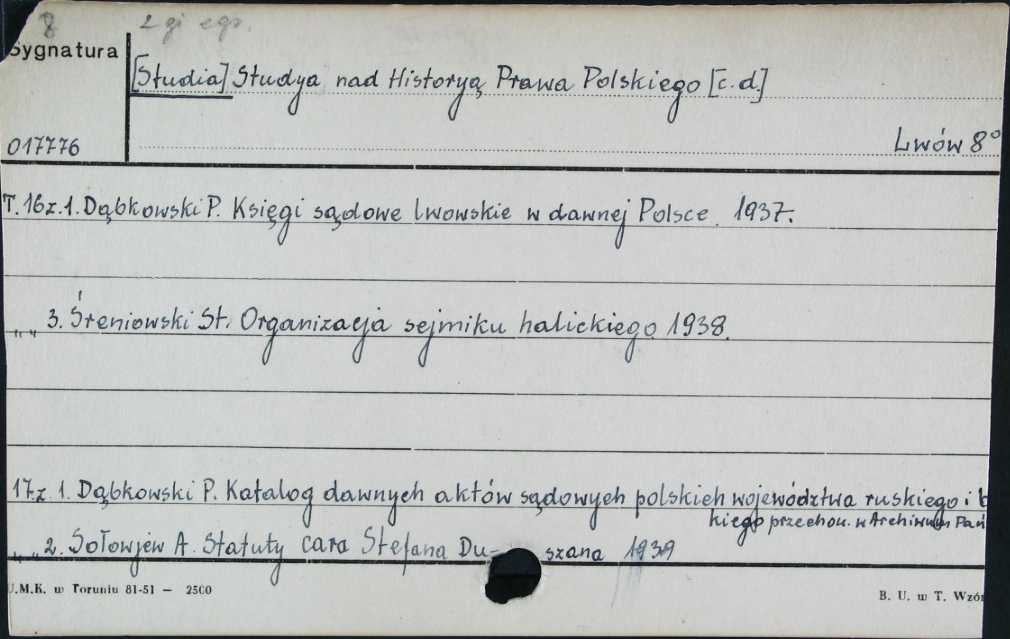 8 2 gi egz.
Sygnatura
[Studia] Studya nad Historyą Prawa Polskiego [c.d.]
017776 Lwów 8°
T. 16 z. 1. Dąbkowski P. Księgi sądowe lwowskie w dawnej Polsce. 1937.
„ „ 3. Śreniowski St. Organizacja sejmiku halickiego. 1938.
17. z 1. Dąbkowski P. Katalog dawnych aktów sądowych polskich województwa ruskiego i b
kiego przechow. w Archiwum Pań
„ „ 2. Sołowjew A. Statuty cara Stefana Du- szana 1939
U.M.K. w Toruniu 81-51 — 2500 B. U. w T. Wzór